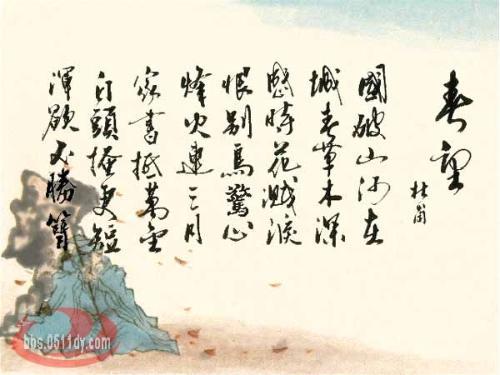 春望
杜甫
國破山河在
城春草木深
感時花濺淚
恨别鳥驚心
烽火連三月
家書抵萬金
白頭搔更短
渾欲不勝簪
bbs.0511dy.com